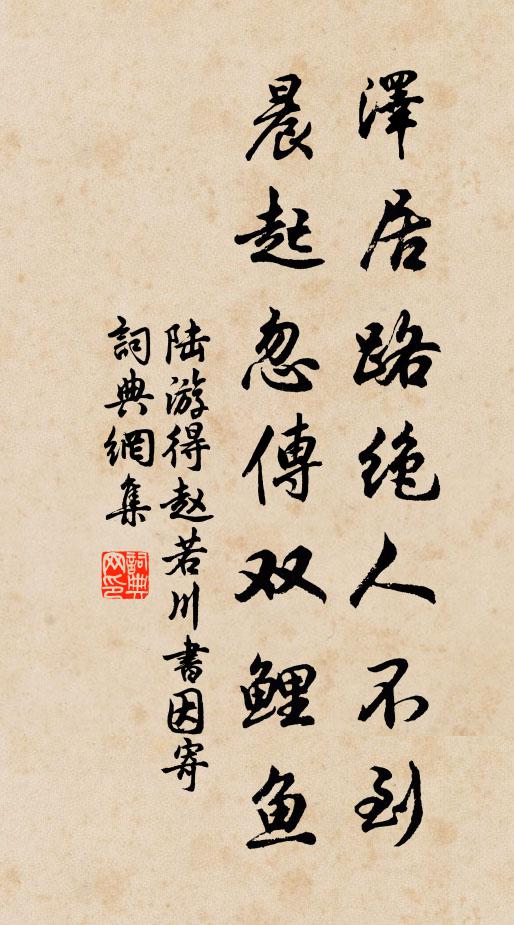 澤居路绝人不到
晨起忽傳双鲤鱼
陆游得赵若川書因寄
詞典網集
詞典网印